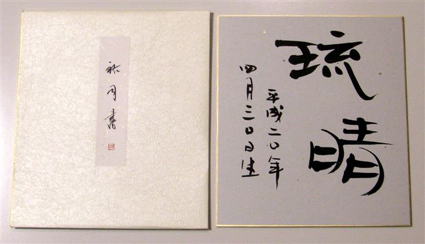 琉晴
平成二〇年
四月三〇日生
月書